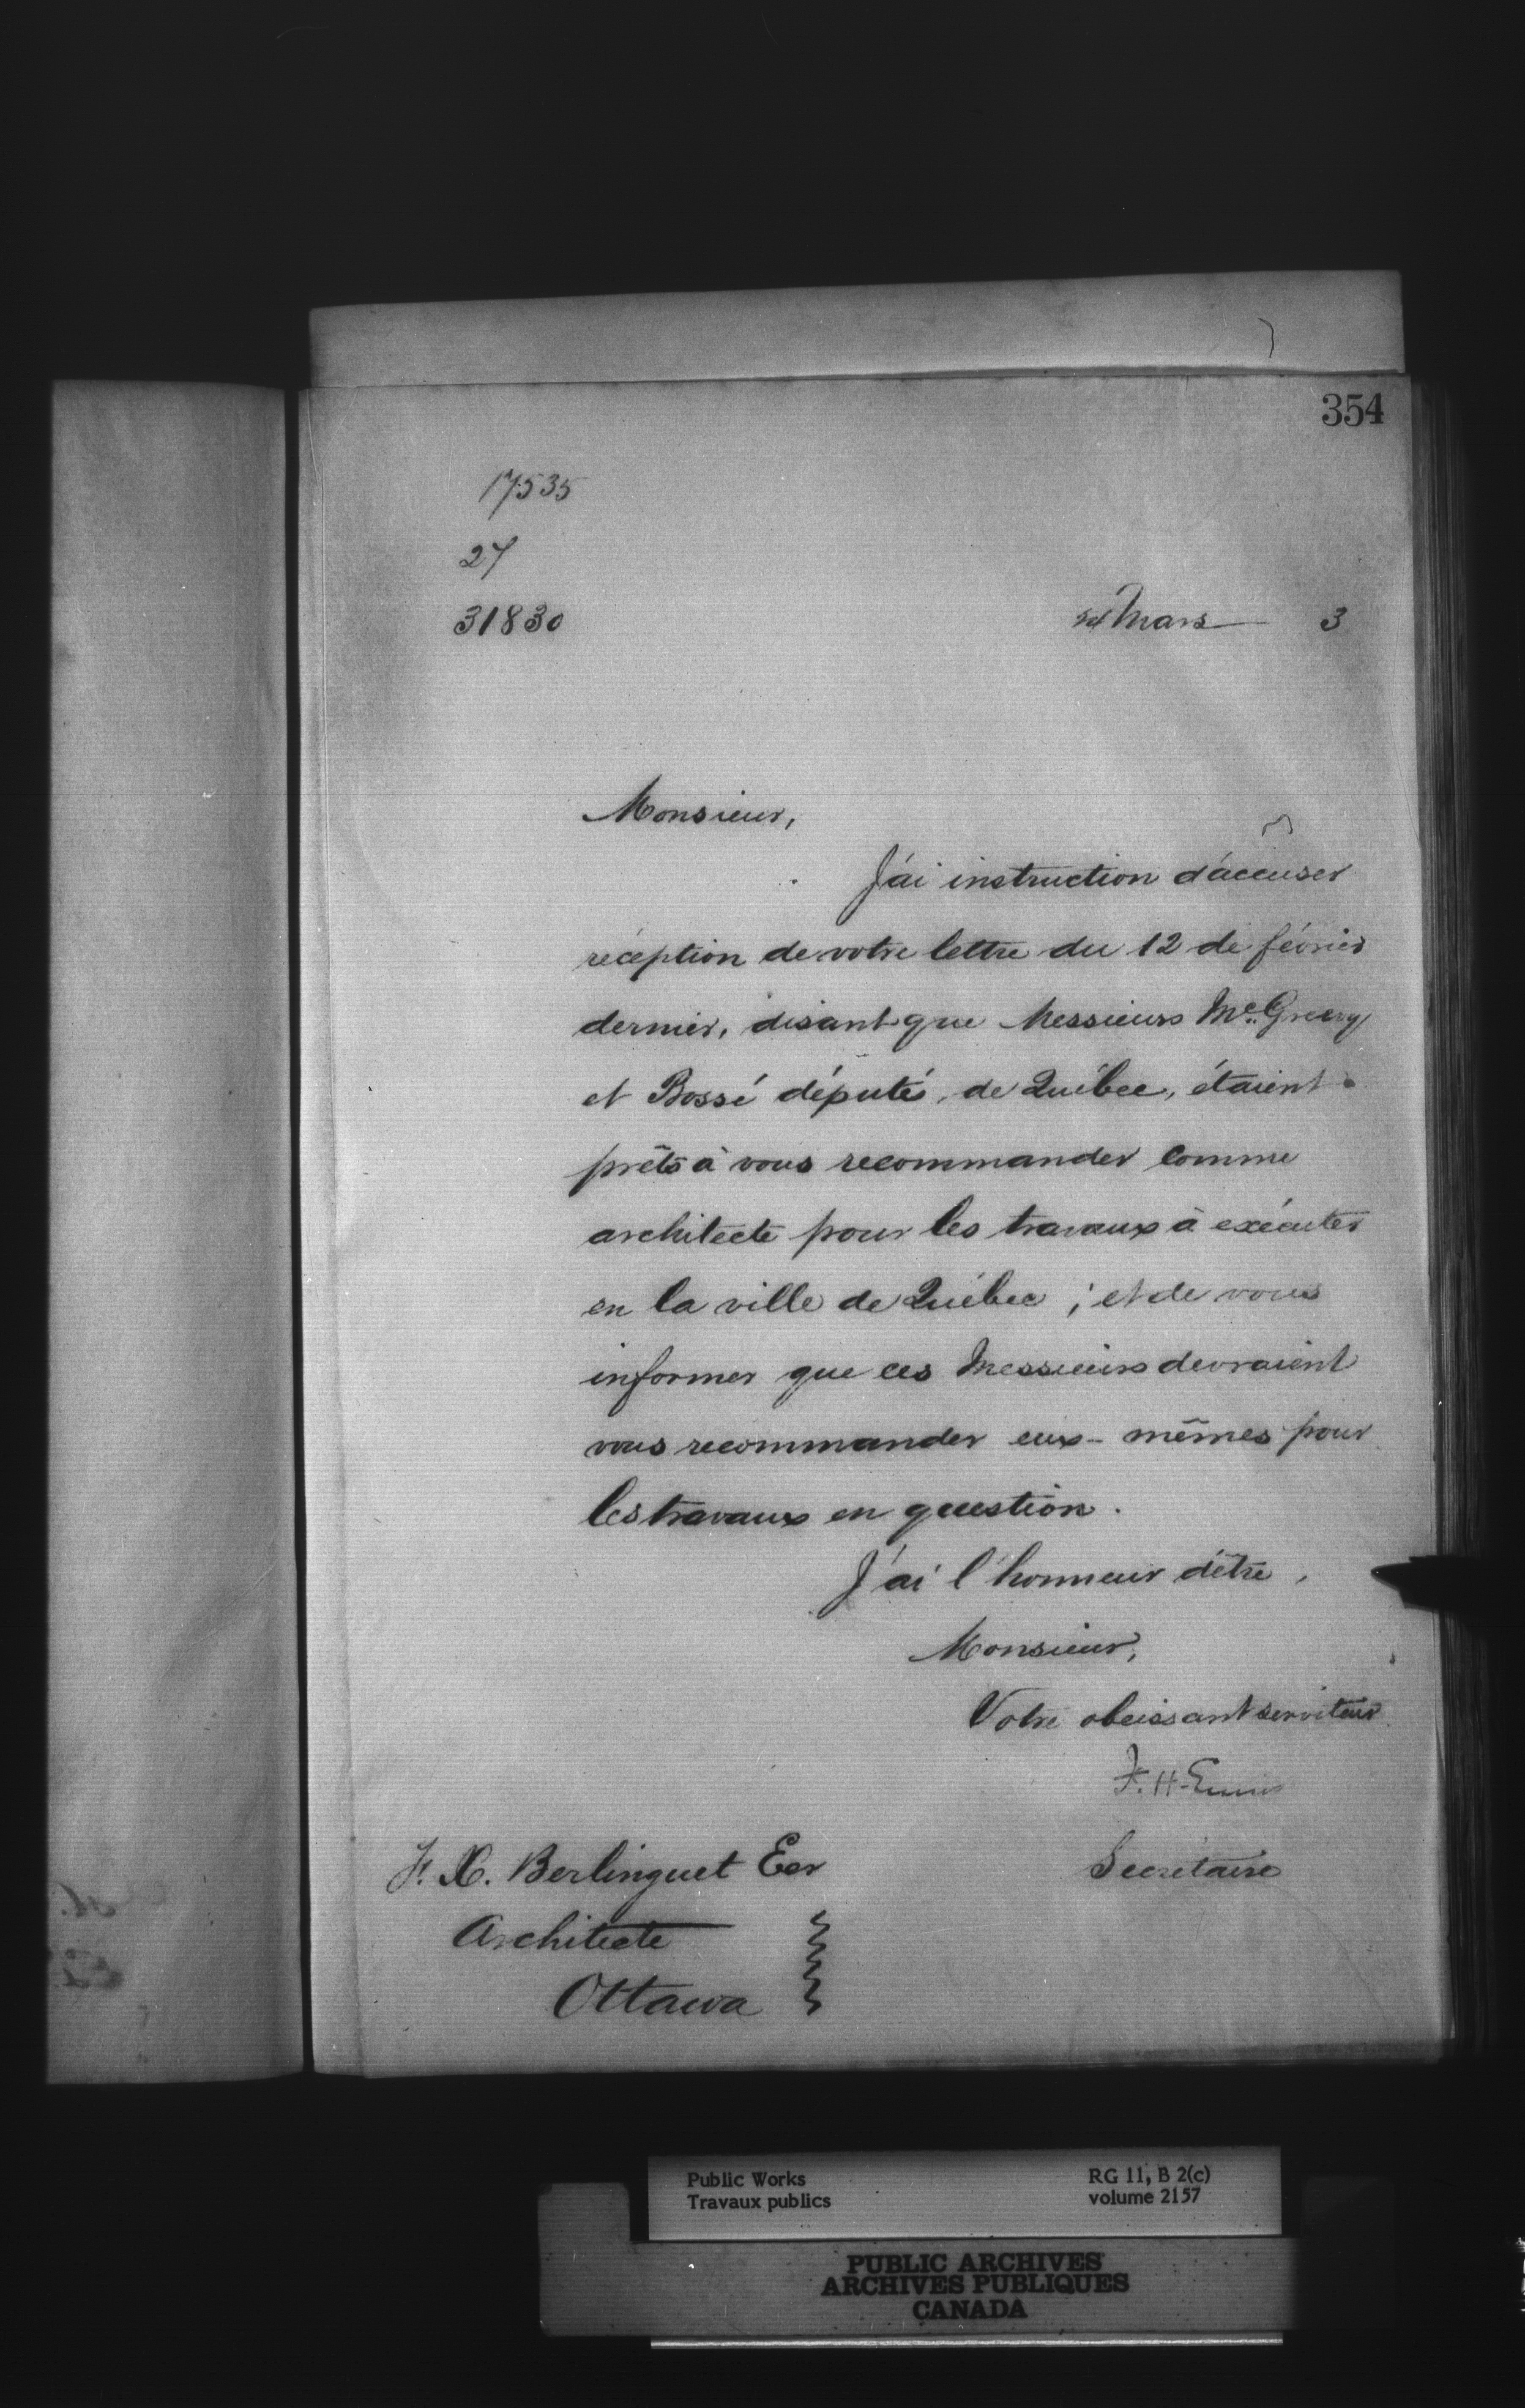 354
17535
27
31830
Mars 3
Monsieur,
J'ai instruction d'accuser
réception de votre lettre du 12 de février
dernier, disant que Messieurs McGreevy
et Bossé député, de Québec, étaient
prêts à vous recommander comme
architecte pour les travaux à exécuter
en la ville de Québec ; et de vous
informer que ces Messieurs devraient
vous recommander eux-mêmes pour
les travaux en question.
J'ai l'honneur d'être,
Monsieur,
Votre obeissant serviteur
F. H. Ennis
Secrétaire
F. X. Berlinguet Ecr
Architecte
Ottawa
Public Works
Travaux publics
RG 11, B 2(c)
volume 2157
PUBLIC ARCHIVES
ARCHIVES PUBLIQUES
CANADA